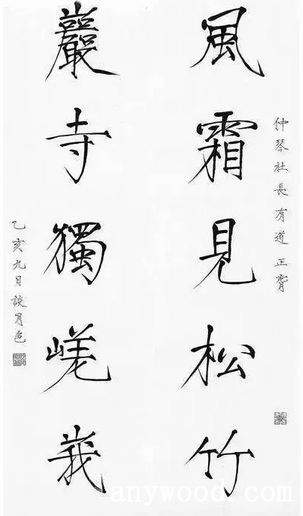 仲琴社長有道正會
風霜見松竹
巖寺獨嵯峩
乙亥九月談月色
www.anywood.com